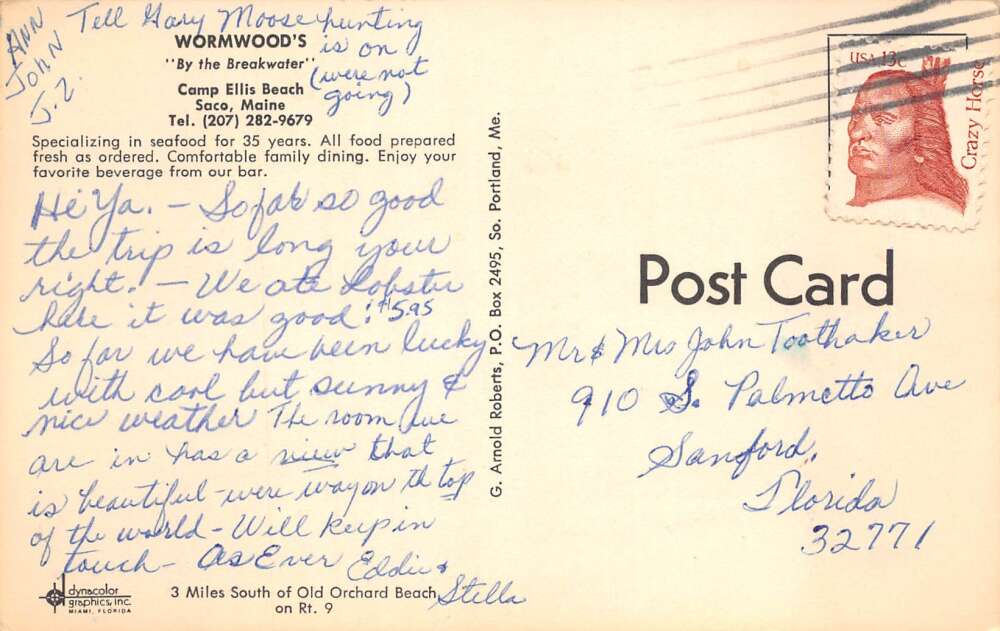 ANN
JOHN
J.Z.
Tell Gary Moose hunting
is on
(were not
going)
WORMWOOD'S
"By the Breakwater"
Camp Ellis Beach
Saco, Maine
Tel. (207) 282-9679
Specializing in seafood for 35 years. All food prepared
fresh as ordered. Comfortable family dining. Enjoy your
favorite beverage from our bar.
Hi Ya. - So far so good
the trip is long your
right. - We ate Lobster
here it was good! $5.95
So far we have been lucky
with cool but sunny &
nice weather The room we
are in has a view that
is beautiful - were way on th top
of the world - Will keep in
touch - As Ever Eddie &
Stella
dynacolor
graphics, inc.
MIAMI, FLORIDA
3 Miles South of Old Orchard Beach
on Rt. 9
G. Arnold Roberts, P.O. Box 2495, So. Portland, Me.
USA 13c
Crazy Horse
Post Card
Mr & Mrs John Toothaker
910 S. Palmetto Ave
Sanford,
Florida
32771